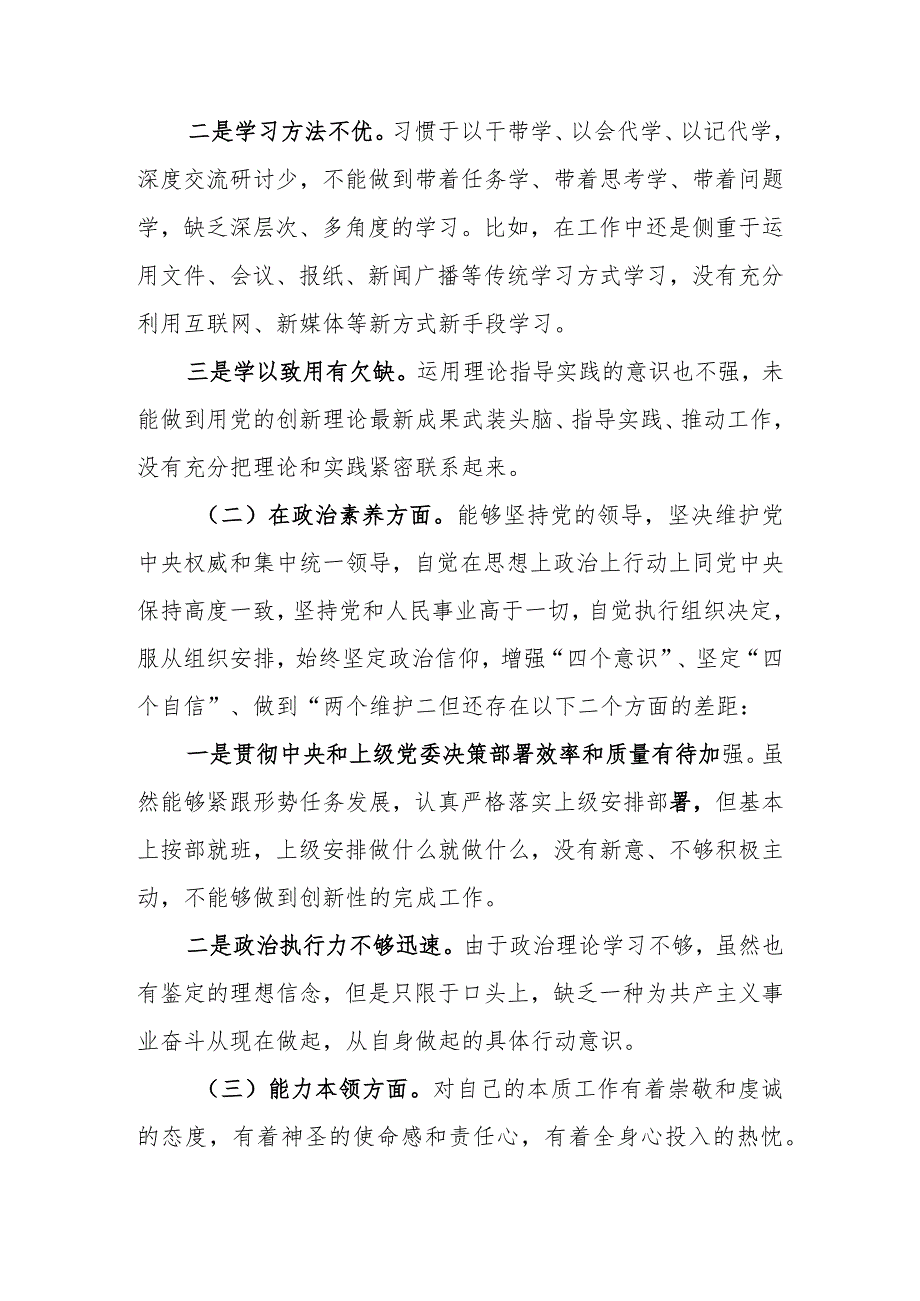 二是学习方法不优。习惯于以干带学、以会代学、以记代学，
深度交流研讨少，不能做到带着任务学、带着思考学、带着问题
学，缺乏深层次、多角度的学习。比如，在工作中还是侧重于运
用文件、会议、报纸、新闻广播等传统学习方式学习，没有充分
利用互联网、新媒体等新方式新手段学习。
三是学以致用有欠缺。运用理论指导实践的意识也不强，未
能做到用党的创新理论最新成果武装头脑、指导实践、推动工作，
没有充分把理论和实践紧密联系起来。
（二）在政治素养方面。能够坚持党的领导，坚决维护党
中央权威和集中统一领导，自觉在思想上政治上行动上同党中央
保持高度一致，坚持党和人民事业高于一切，自觉执行组织决定，
服从组织安排，始终坚定政治信仰，增强“四个意识”、坚定“四
个自信”、做到“两个维护二但还存在以下二个方面的差距：
一是贯彻中央和上级党委决策部署效率和质量有待加强。虽
然能够紧跟形势任务发展，认真严格落实上级安排部署，但基本
上按部就班，上级安排做什么就做什么，没有新意、不够积极主
动，不能够做到创新性的完成工作。
二是政治执行力不够迅速。由于政治理论学习不够，虽然也
有鉴定的理想信念，但是只限于口头上，缺乏一种为共产主义事
业奋斗从现在做起，从自身做起的具体行动意识。
（三）能力本领方面。对自己的本质工作有着崇敬和虔诚
的态度，有着神圣的使命感和责任心，有着全身心投入的热忱。